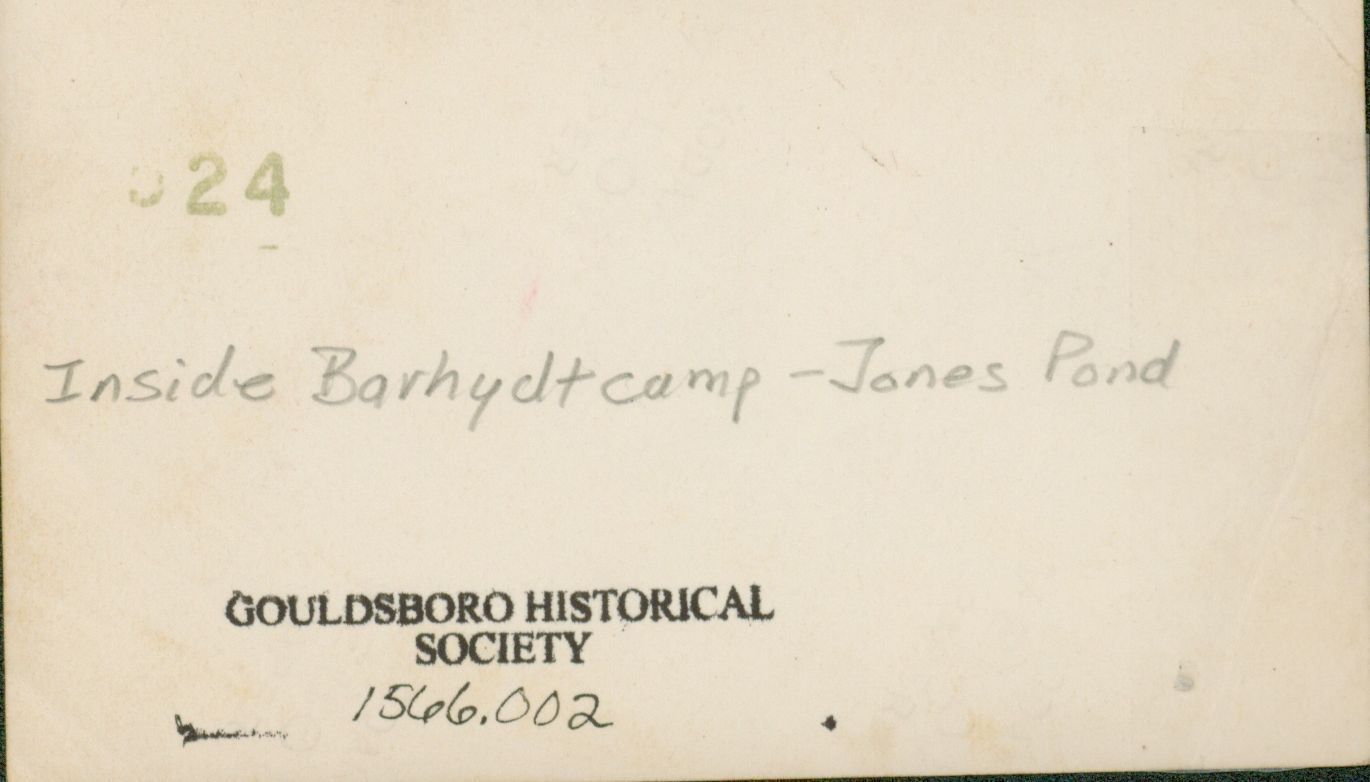 24
Inside Barhydt camp - Jones Pond
GOULDSBORO HISTORICAL
SOCIETY
1566.002